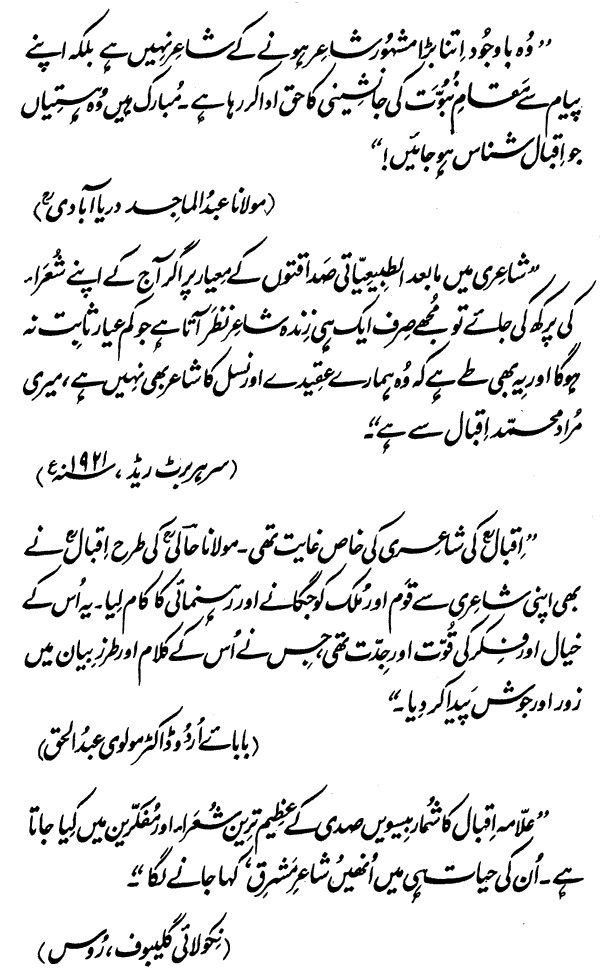 ”وُہ باوجُود اِتنا بڑا مشہُور شاعِر ہونے کے شاعِر نہیں ہے بلکہ اپنے
پیام سے مَقامِ نبُوّت کی جانشینی کا حق ادا کر رہا ہے۔ مُبارک ہیں وُہ ہستیاں
جو اِقبال شناس ہو جائیں!“
(مولانا عبدُ الماجد دریا آبادیؒ)
”شاعری میں مابعد الطبیعیّاتی صداقتوں کے معیار پر اگر آج کے اپنے شُعراء
کی پرکھ کی جائے تو مُجھے صِرف ایک ہی زِندہ شاعر نظر آتا ہے جو کم عیار ثابِت نہ
ہوگا اور یہ بھی طے ہے کہ وُہ ہمارے عقیدے اور نسل کا شاعر بھی نہیں ہے، میری
مُراد محمّد اِقبال سے ہے“۔
(سر ہربرٹ ریڈ، ۱۹۲۱ سنہ ع)
”اِقبالؒ کی شاعری کی خاص غایت تھی۔ مولانا حالیؒ کی طرح اِقبالؒ نے
بھی اپنی شاعری سے قوم اور مُلک کو جگانے اور رہنمائی کا کام لیا۔ یہ اُس کے
خیال اور فِکر کی قُوّت اور جِدّت تھی، جِس نے اُس کے کلام اور طرزِ بیان میں
زور اور جوش پَیدا کر دیا۔“
(بابائے اُردُو ڈاکٹر مولوی عبدُ الحق)
”علّامہ اِقبال کا شُمار بیسویں صدی کے عظیم ترین شُعراء اور مُفکّرین میں کِیا جاتا
ہے۔ اُن کی حیات ہی میں اُنھیں ’شاعرِ مَشرِق‘ کہا جانے لگا“۔
(نِکولائی گلیبوف، رُوس)